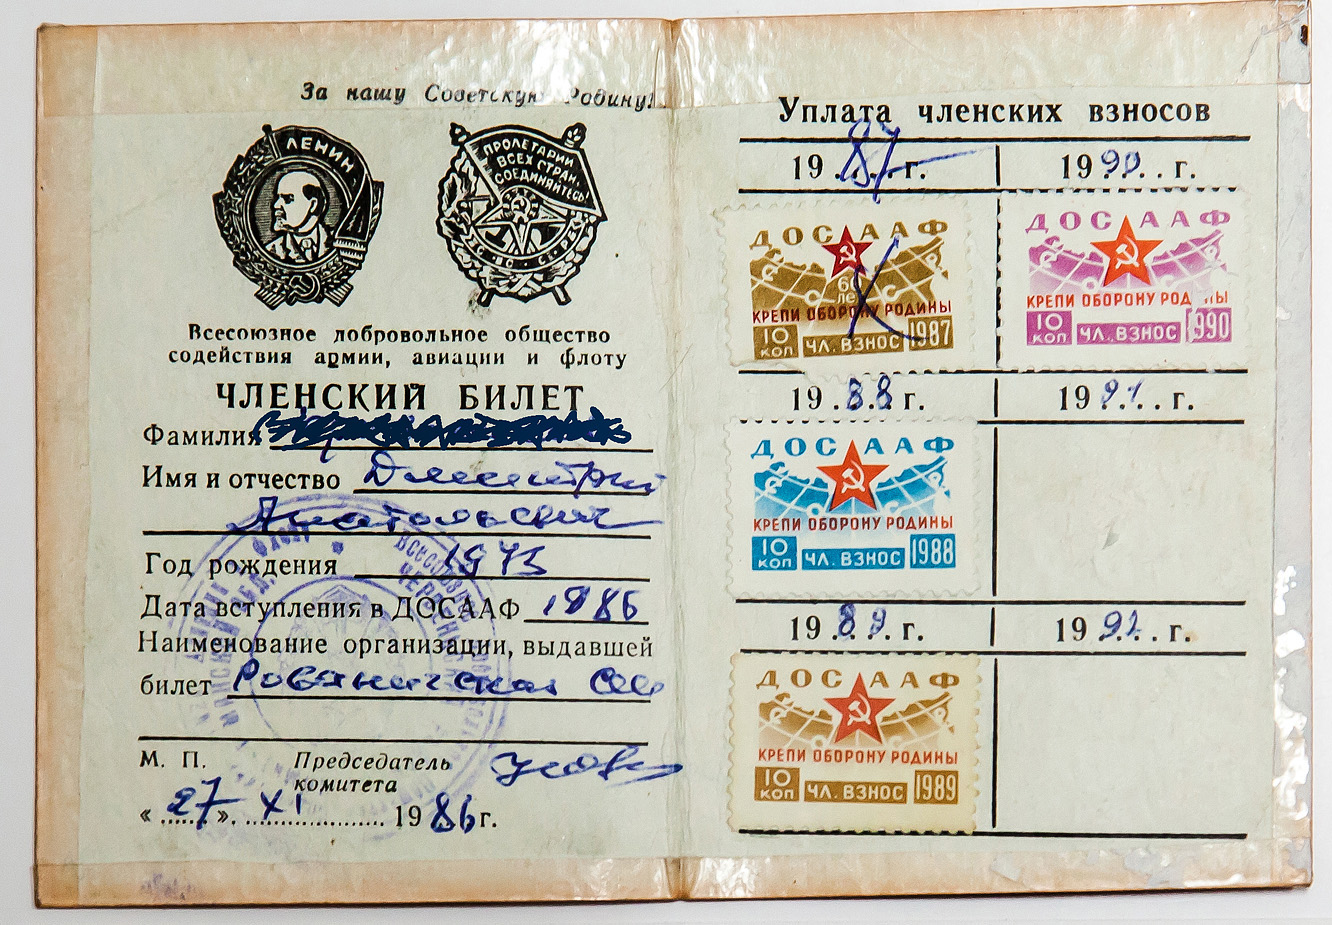 За нашу Советскую Родину!
ЛЕНИН
ПРОЛЕТАРИИ
ВСЕХ СТРАН,
СОЕДИНЯЙТЕСЬ!
Всесоюзное добровольное общество
содействия армии, авиации и флоту
ЧЛЕНСКИЙ БИЛЕТ
Фамилия
Имя и отчество Дмитрий
Анатольевич
Год рождения 1973
Дата вступления в ДОСААФ 1986
Наименование организации, выдавшей
билет Рованичская
М. П. Председатель
комитета
« 27 » XI 1986 г.
Уплата членских взносов
1987 г. 1990 г.
ДОСААФ
60
лет
КРЕПИ ОБОРОНУ РОДИНЫ
10 КОП ЧЛ. ВЗНОС 1987
ДОСААФ
КРЕПИ ОБОРОНУ РОДИНЫ
10 КОП ЧЛ. ВЗНОС 1990
1988 г. 1991 г.
ДОСААФ
КРЕПИ ОБОРОНУ РОДИНЫ
10 КОП ЧЛ. ВЗНОС 1988
1989 г. 1992 г.
ДОСААФ
КРЕПИ ОБОРОНУ РОДИНЫ
10 КОП ЧЛ. ВЗНОС 1989